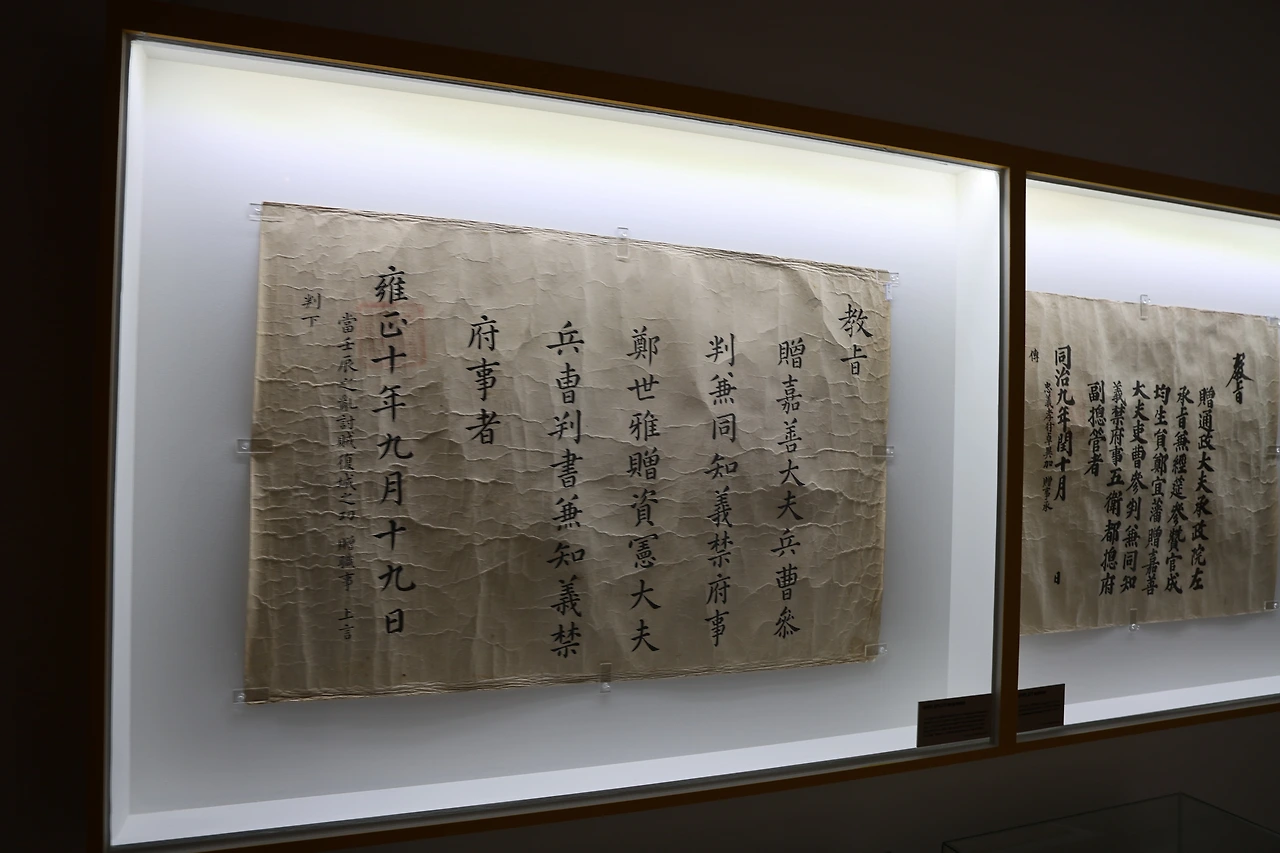 教旨
贈嘉善大夫兵曹參
判兼同知義禁府事
鄭世雅贈資憲大夫
兵曺判書兼知義禁
府事者
雍正十年九月十九日
當壬辰之亂討賊復城之功 贈職事 上言
判下
敎旨
贈通政大夫承政院左
承旨兼經筵參贊官成
均生員鄭宜藩贈嘉善
大夫吏曹參判兼同知
義禁府事五衛都摠府
副摠管者
同治九年閏十月 日
忠義孝行卓異加贈事承
傳